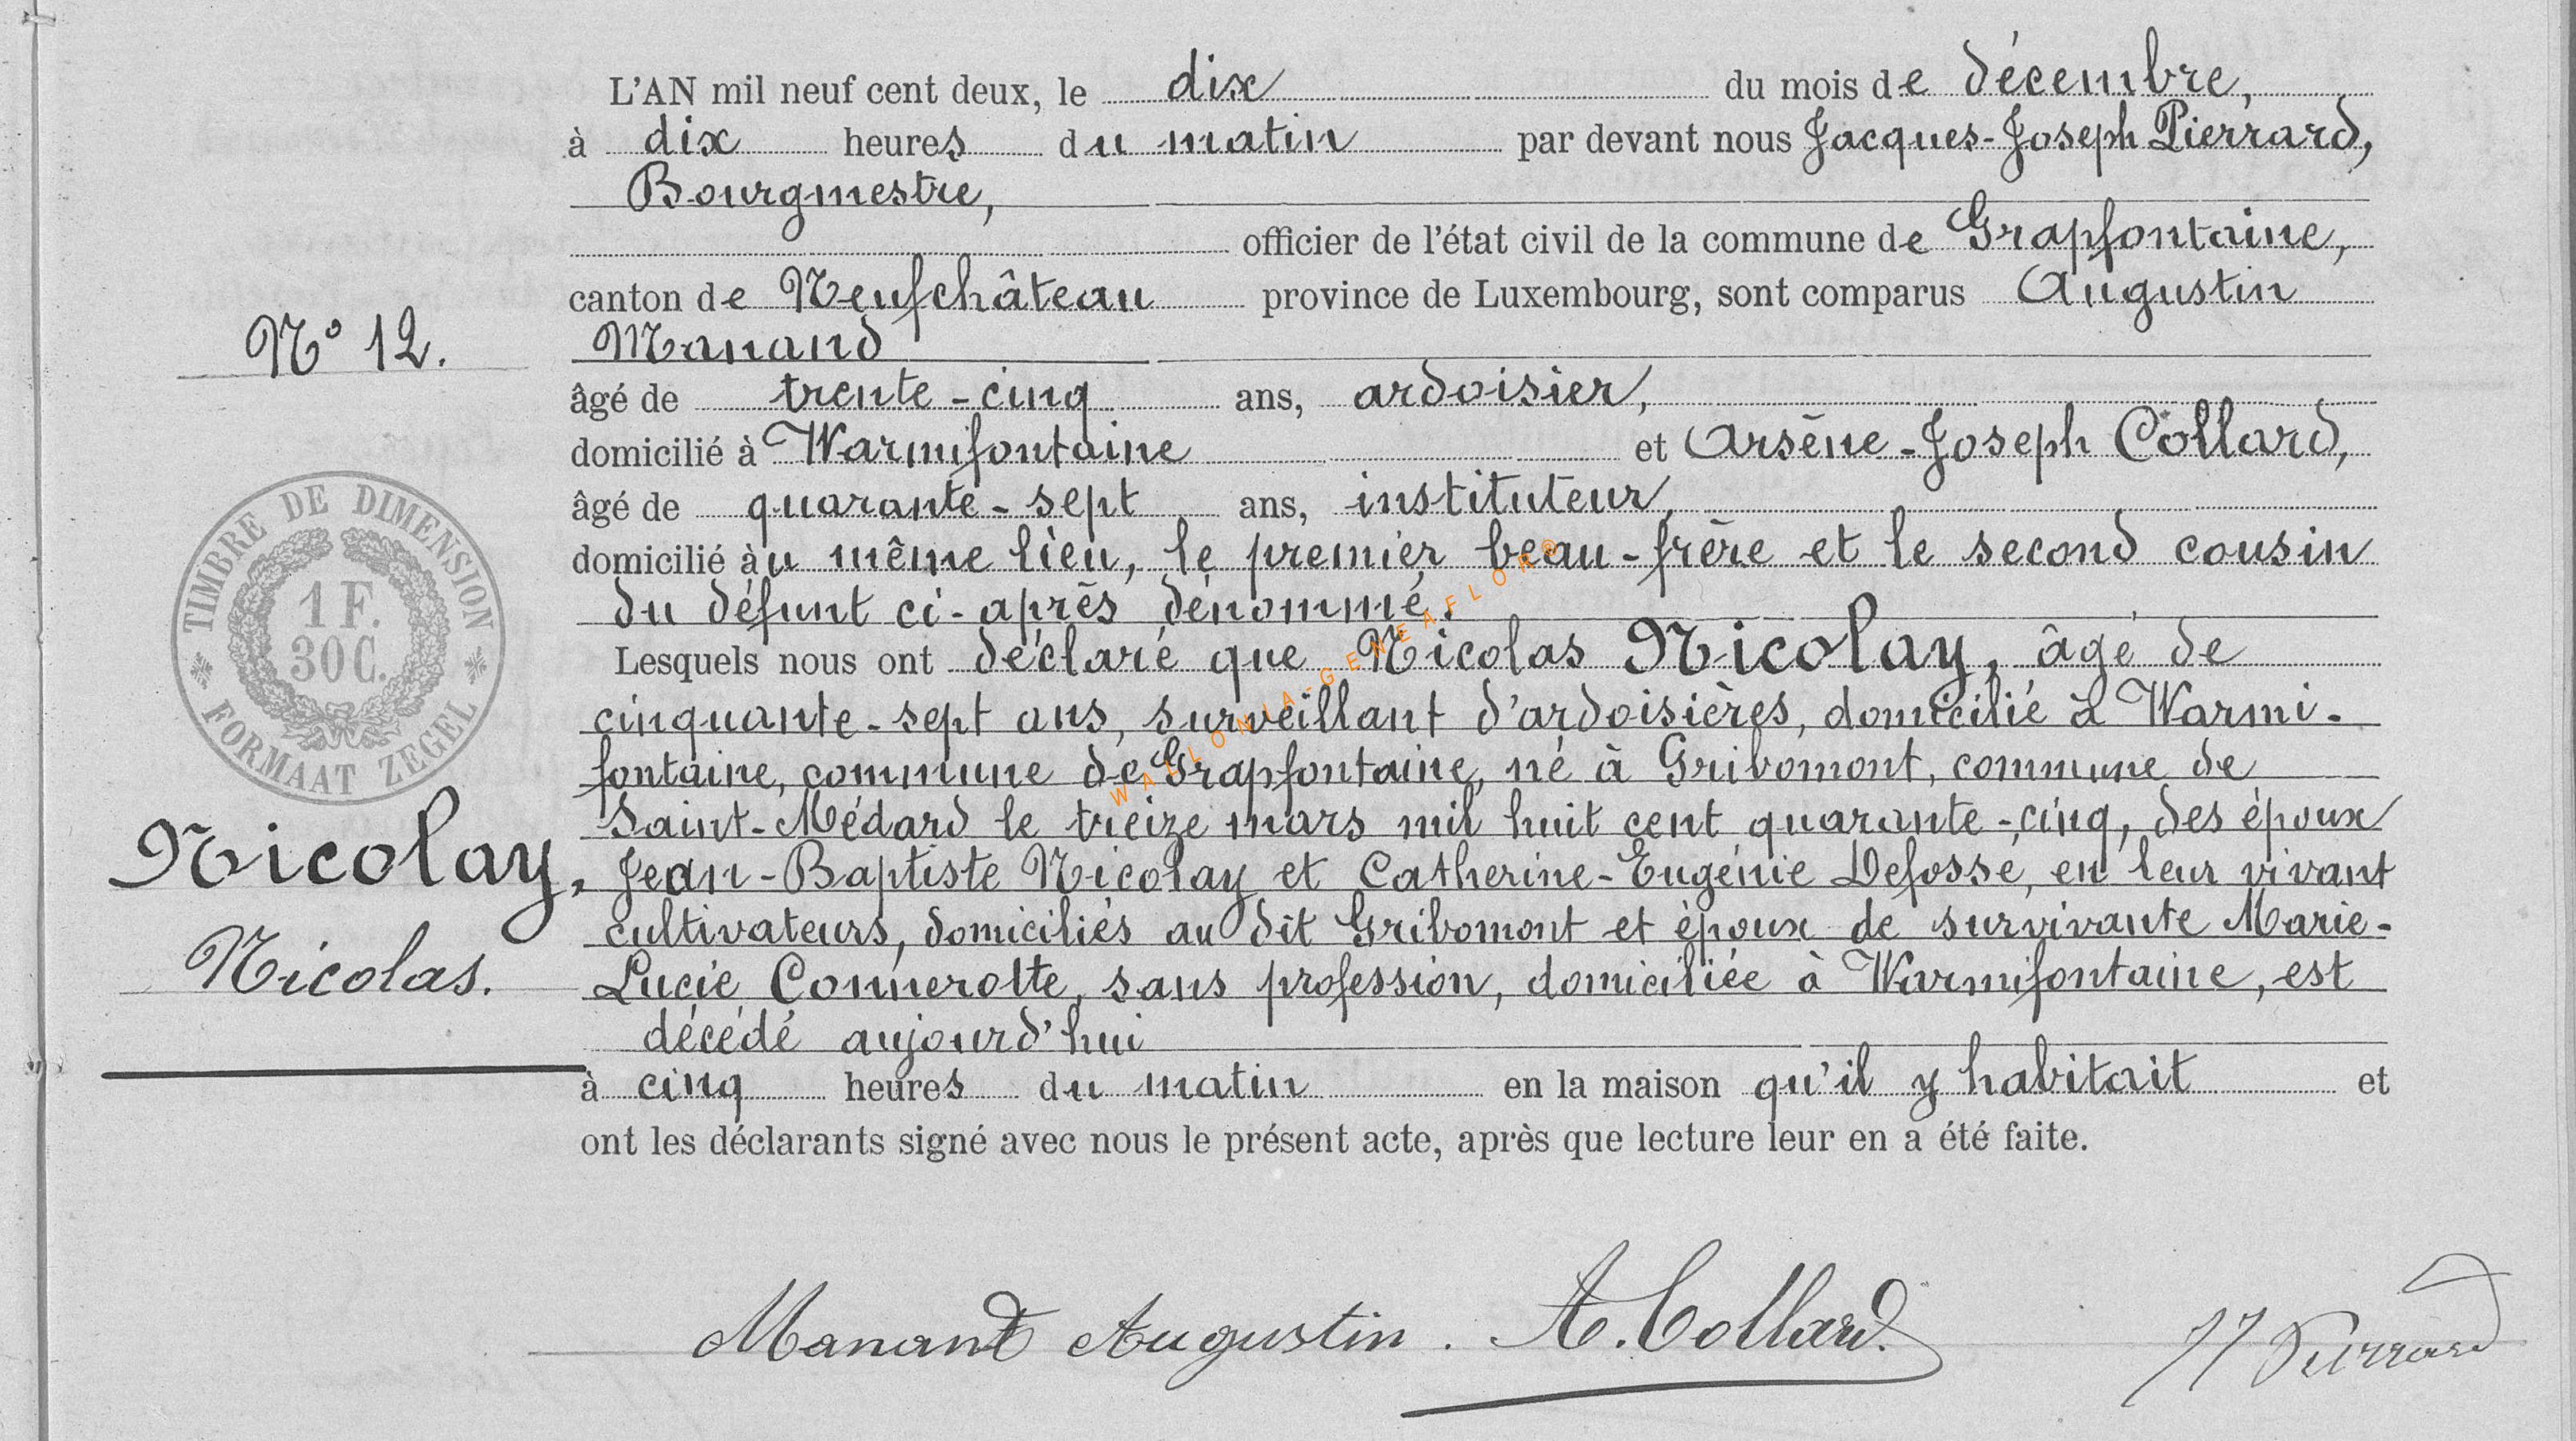 L'AN mil neuf cent deux, le dix du mois de décembre,
à dix heures du matin par devant nous Jacques-Joseph Pierrard,
Bourgmestre,
officier de l'état civil de la commune de Grapfontaine,
canton de Neufchâteau province de Luxembourg, sont comparus Augustin
Manand
âgé de trente-cinq ans, ardoisier,
domicilié à Warmifontaine et Arsène-Joseph Collard,
âgé de quarante-sept ans, instituteur,
domicilié àu même lieu, le premier beau-frère et le second cousin
du défunt ci-après dénommé.
Lesquels nous ont déclaré que Nicolas Nicolay, âgé de
cinquante-sept ans, surveillant d'ardoisières, domicilié à Warmi-
fontaine, commune de Grapfontaine, né à Gribomont, commune de
Saint-Médard le treize mars mil huit cent quarante-cinq, des époux
Jean-Baptiste Nicolay et Catherine-Eugénie Defossé, en leur vivant
cultivateurs, domiciliés au dit Gribomont et époux de survivante Marie-
Lucie Connerotte, sans profession, domiciliée à Warmifontaine, est
décédé aujourd'hui
à cinq heures du matin en la maison qu'il y habitait et
ont les déclarants signé avec nous le présent acte, après que lecture leur en a été faite.
N° 12.
TIMBRE DE DIMENSION
1 F.
30 C.
FORMAAT ZEGEL
Nicolay,
Nicolas.
WALLONIA-GENEAFLOR®
Manand Augustin. A. Collard.
JJ Pierrard